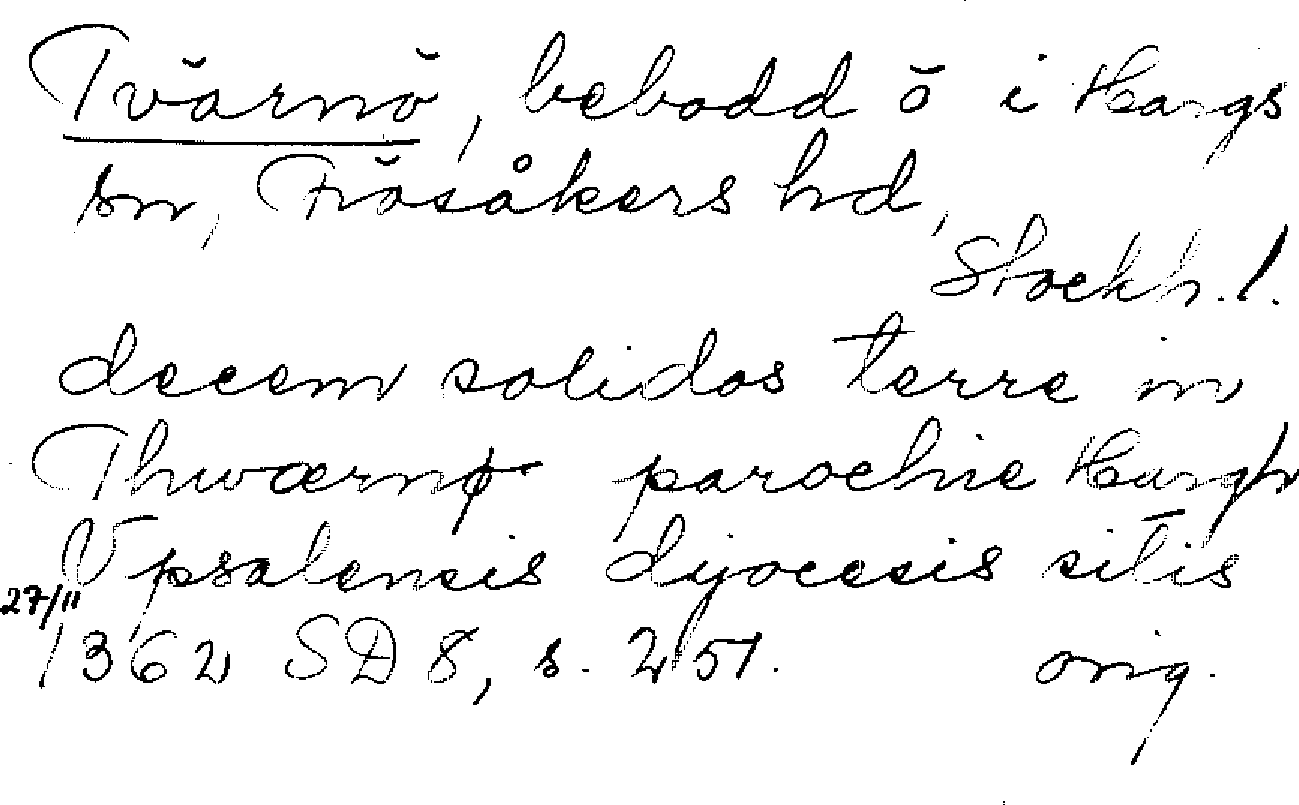 Tvärnö, bebodd ö i Hargs
sn, Frösåkers hd,
Stockh. l.
decem solidos terre in
Thwærnø parochie Hargh
Vpsalensis dyocesis sitis
27/11
1362 SD 8, s. 251. orig.